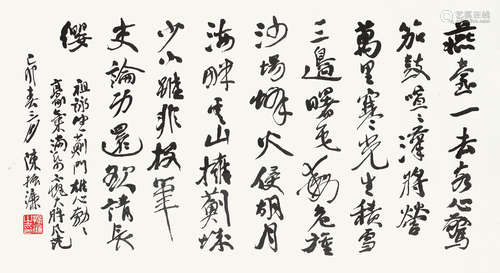 燕臺一去客心驚
笳鼓喧〻漢將營
萬里寒光生積雪
三邊曙色動危旌
沙場烽火侵胡月
海畔雲山擁薊城
少小雖非投筆
吏論功還欲請長
纓
祖詠望薊門雄心勃〻
己卯春三月陳振濂